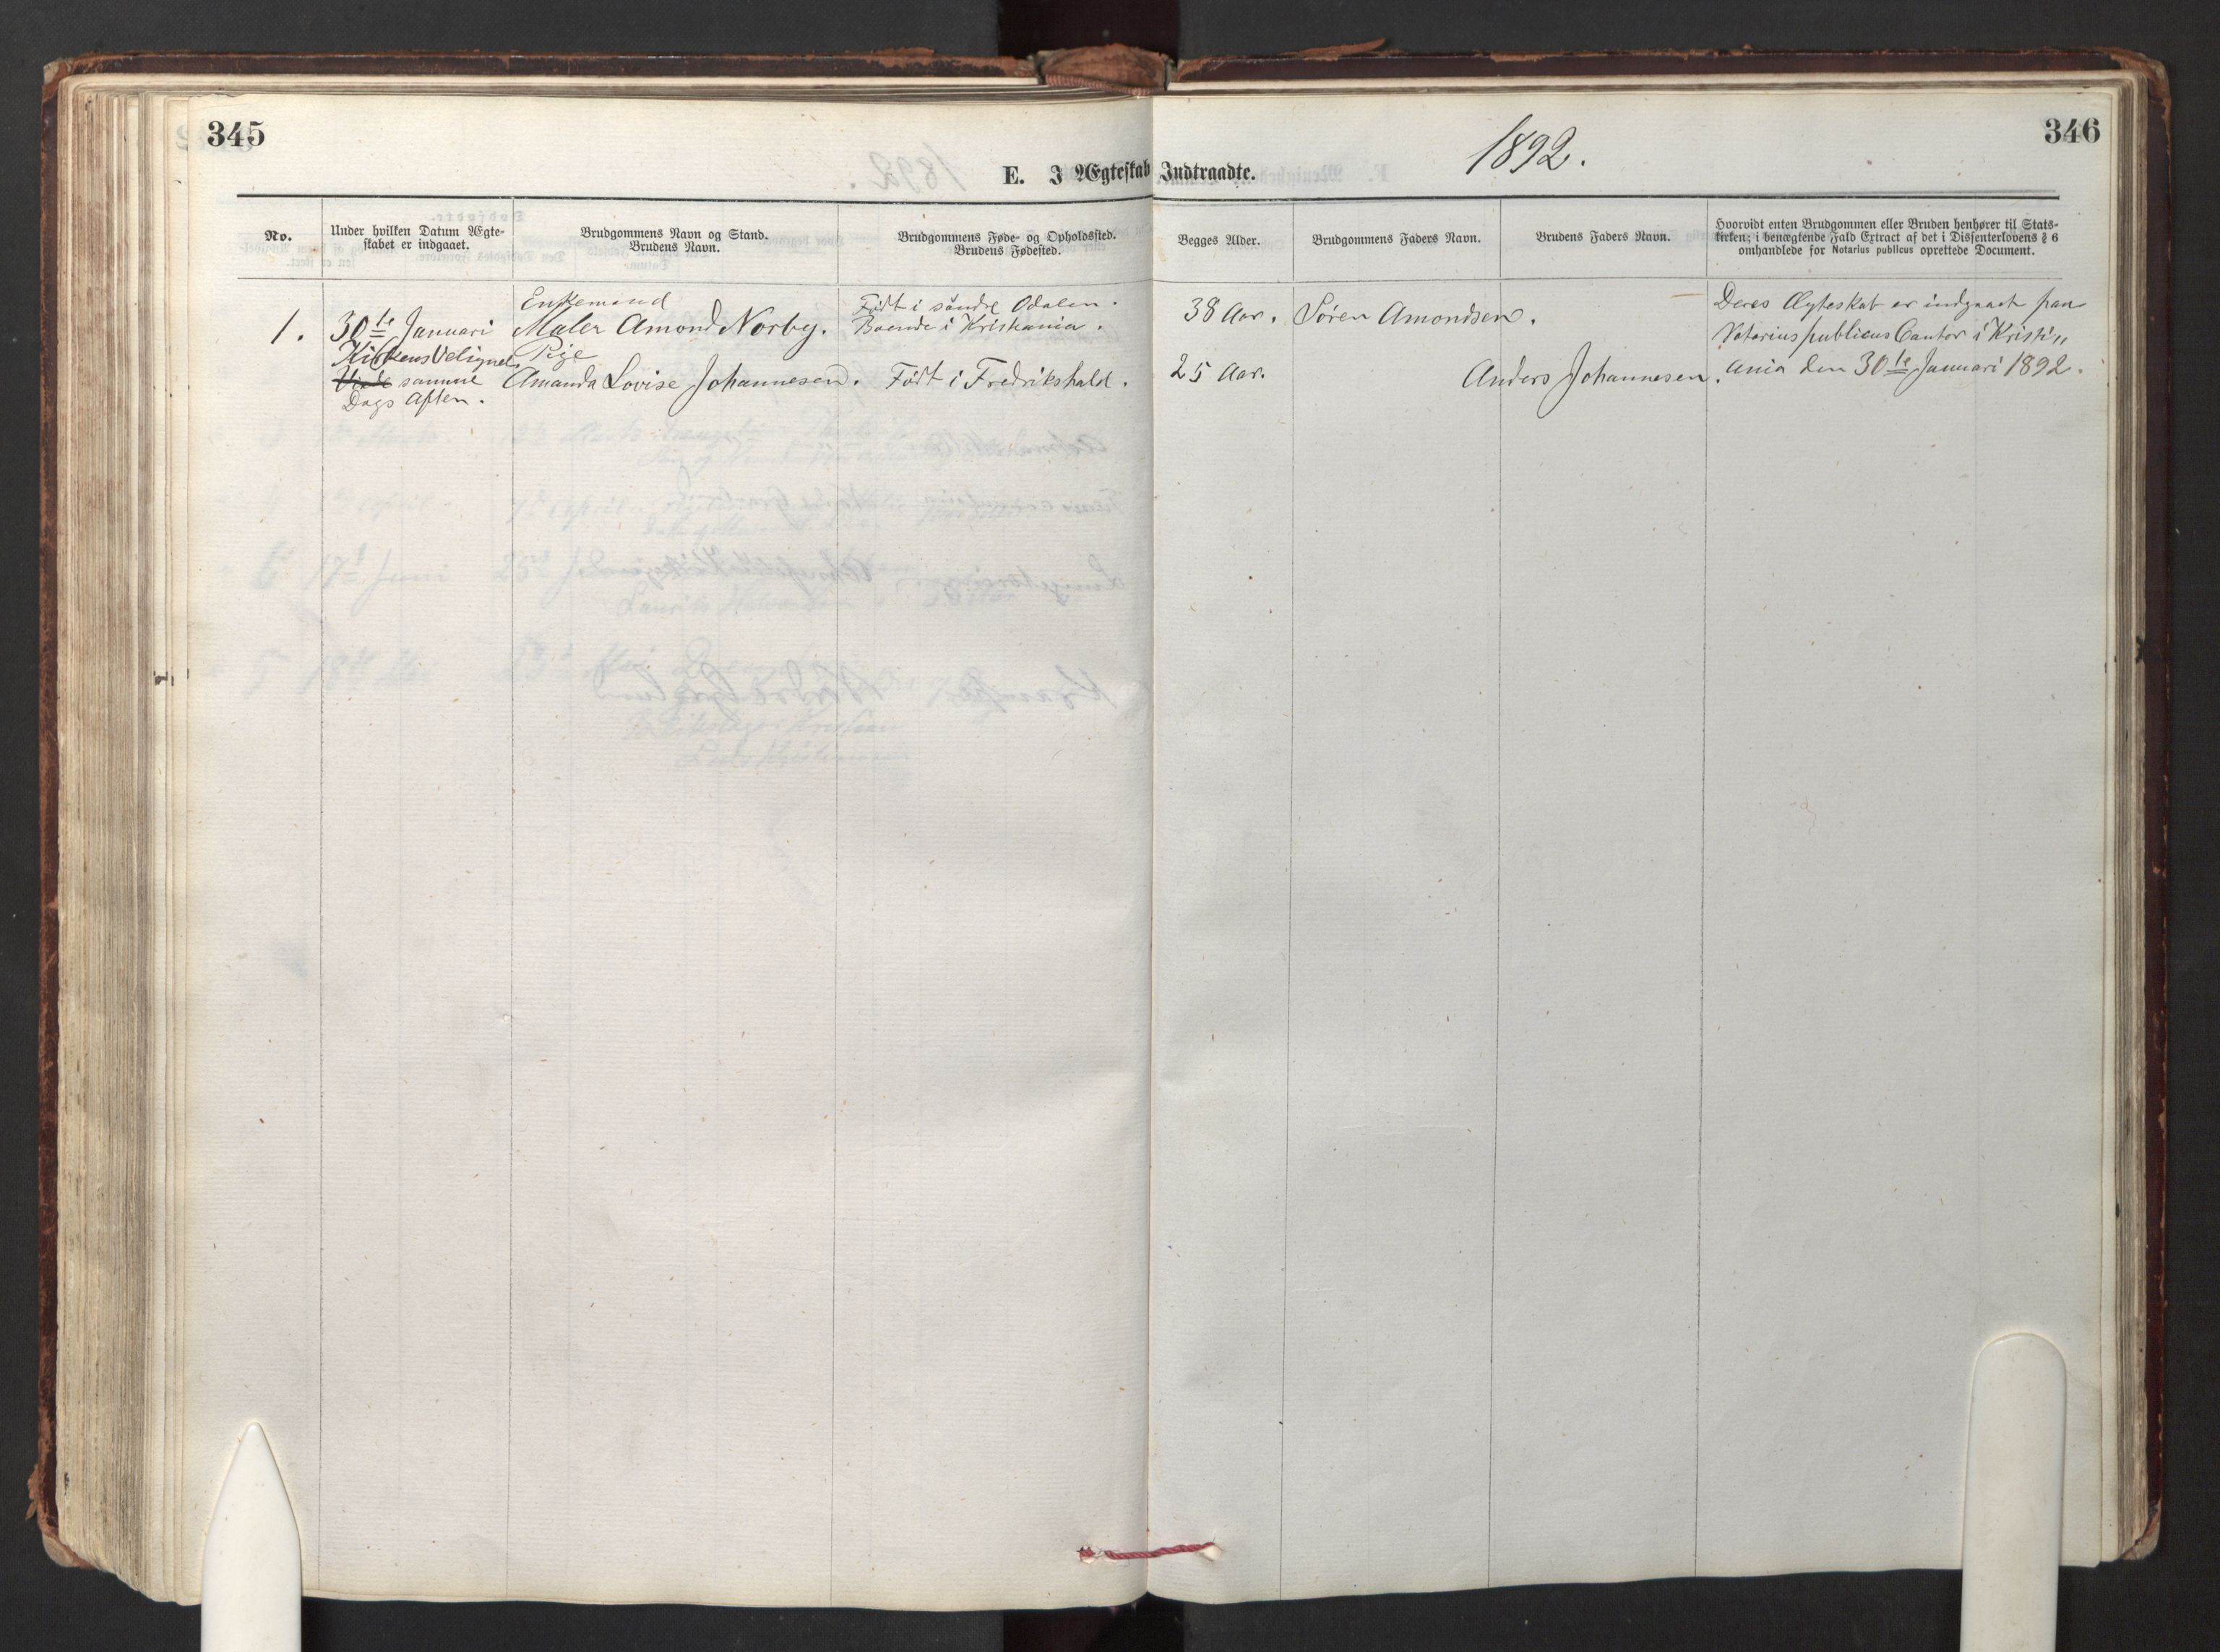 345
346
1892.
E. I Ægteskab Indtraadte.
No.
Under hvilken Datum Ægte-
skabet er indgaaet.
Brudgommens Navn og Stand.
Brudens Navn.
Brudgommens Føde- og Opholdssted.
Brudens Fødested.
Begges Alder.
Brudgommens Faders Navn.
Brudens Faders Navn.
Hvorvidt enten Brudgommen eller Bruden henhører til Stats-
kirken; i benægtende Fald Extract af det i Dissenterlovens § 6
omhandlede for Notarius publicus oprettede Document.
1.
30te Januari
Kirkens Velignels
samme
Dags Aften.
Enkemand
Maler Amond Norby.
Pige
Amanda Lovise Johannesen.
Født i søndre Odalen.
Boende i Kristiania.
Født i Fredrikshald.
38 Aar.
25 Aar.
Søren Amondsen.
Anders Johannesen.
Deres Ægteskab er indgaaet paa
Notarius publicus Contor i Kristi„
ania den 30te Januari 1892.